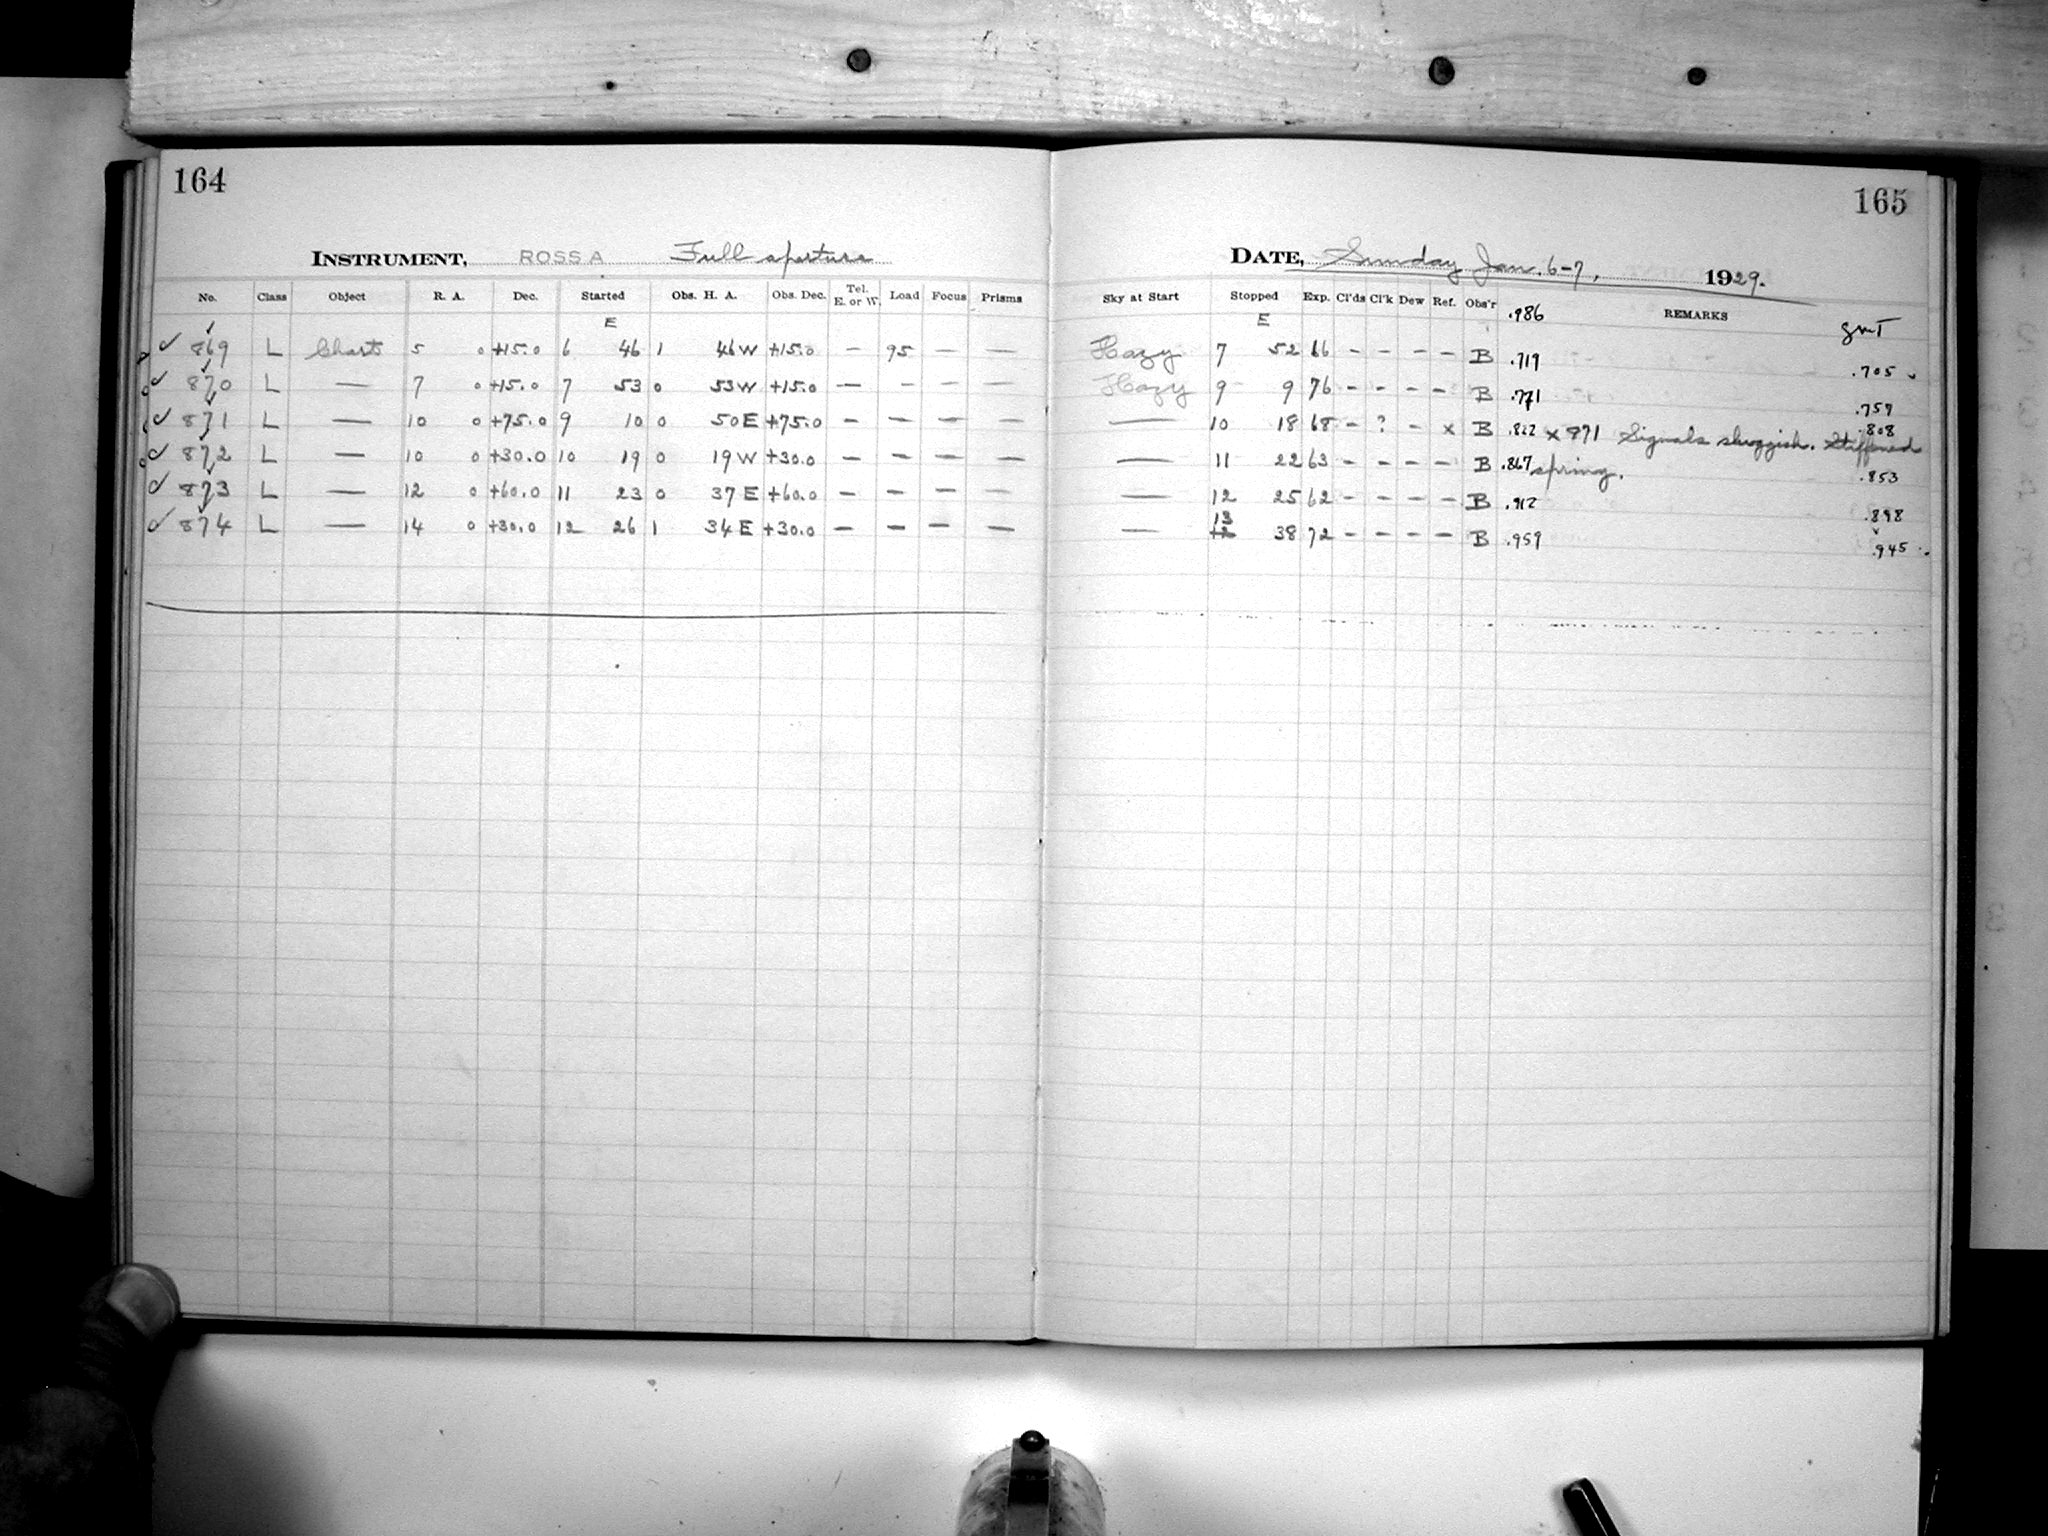 164
INSTRUMENT, ROSS A Full aperture
No. Class Object R. A. Dec. Started Obs. H. A. Obs. Dec. Tel. E. or W. Load Focus Prisms
E
869 L Chart 5 0 +15.0 6 46 1 46 W +15.0 — 95 — —
870 L — 7 0 +15.0 7 53 0 53 W +15.0 — — — —
871 L — 10 0 +75.0 9 10 0 50 E +75.0 — — — —
872 L — 10 0 +30.0 10 19 0 19 W +30.0 — — — —
873 L — 12 0 +60.0 11 23 0 37 E +60.0 — — — —
874 L — 14 0 +30.0 12 26 1 34 E +30.0 — — — —
165
DATE, Sunday Jan. 6-7, 1929.
Sky at Start Stopped Exp. Cl'ds Cl'k Dew Ref. Obs'r .986 REMARKS GMT
E
Hazy 7 52 66 - - - - B .719 .705
Hazy 9 9 76 - - - - B .771 .757
— 10 18 68 - ? - x B .822 x 871 Signals sluggish. Stiffened .808
— 11 22 63 - - - - B .867 spring. .853
— 12 25 62 - - - - B .912 .898
— 13 12 38 72 - - - - B .959 .945